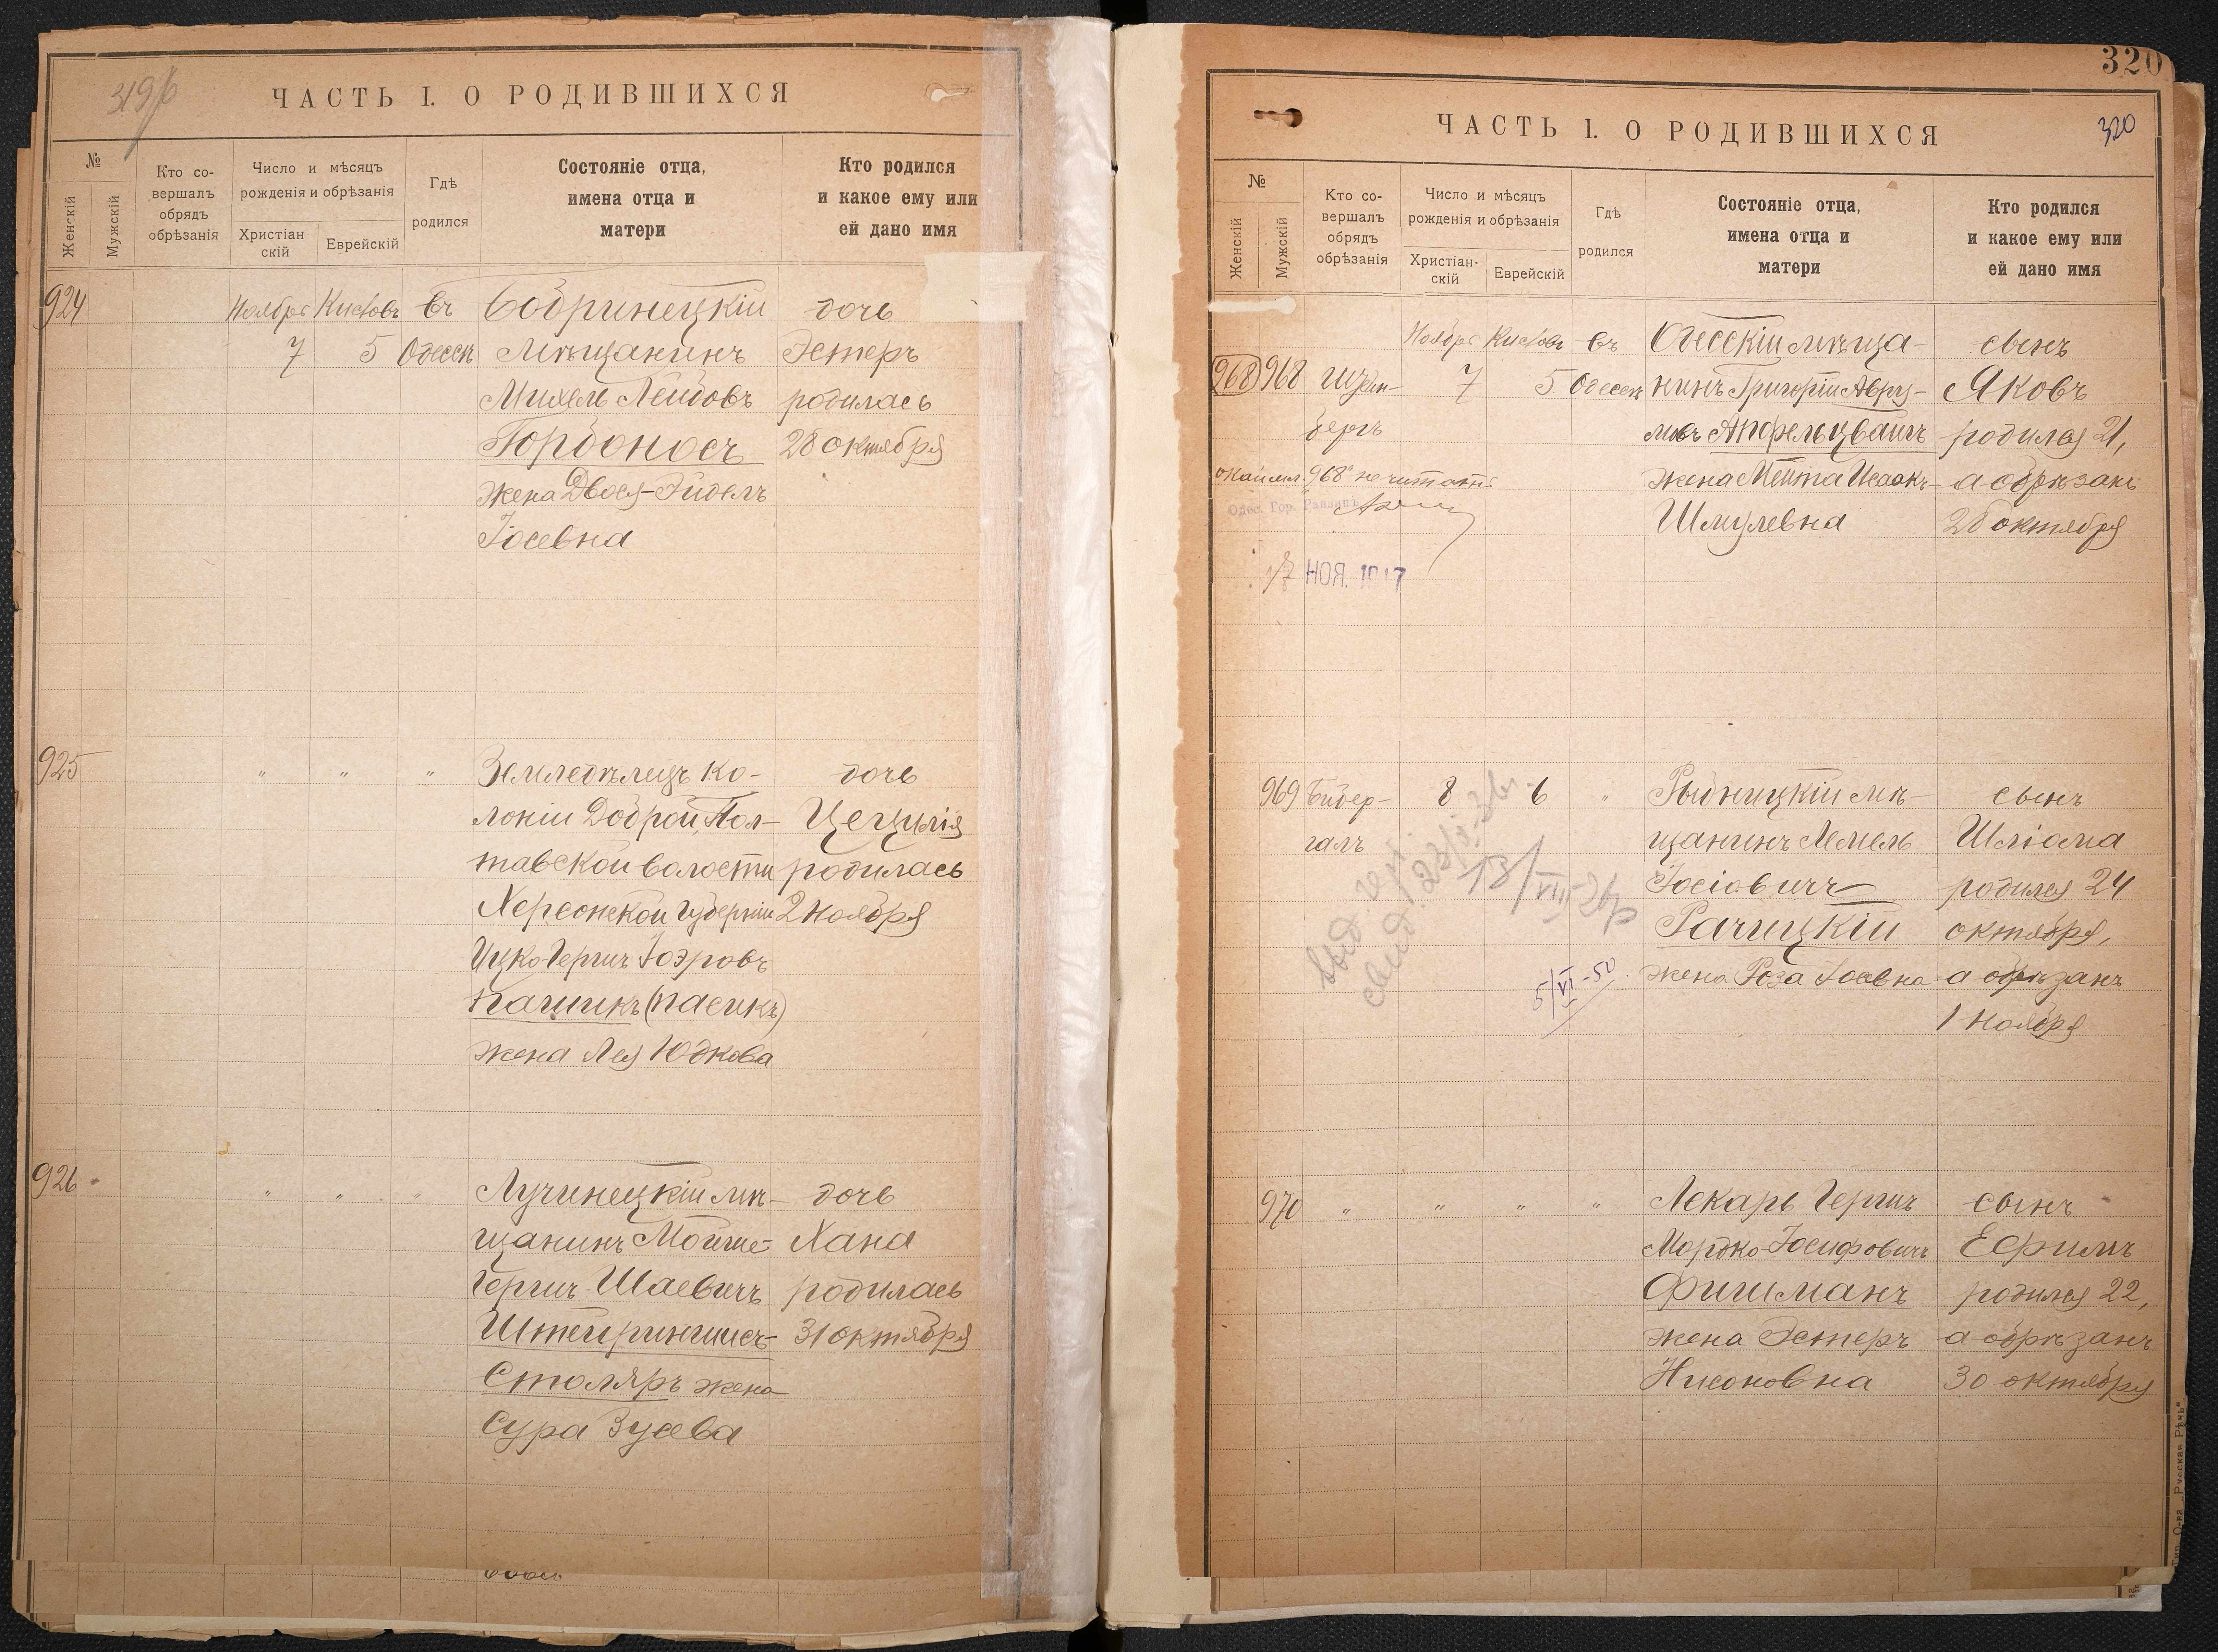 319/б
ЧАСТЬ I. О РОДИВШИХСЯ
№
Женскій
Мужскій
Кто со-
вершалъ
обрядъ
обрѣзанія
Число и мѣсяцъ
рожденія и обрѣзанія
Христіан
скій
Еврейскій
Гдѣ
родился
Состояніе отца,
имена отца и
матери
Кто родился
и какое ему или
ей дано имя
924 Ноября Кислевъ въ Бобринецкій дочь
7 5 Одессѣ мѣщанинъ Эстеръ
Михель Лейбовъ родилась
Горбоносъ 28 октября
жена Двося-Эйделъ
Іосевна
925 " " " Земледѣлецъ ко- дочь
лоніи Доброй, Пол- Цецилія
тавской волости родилась
Херсонской губерніи 2 ноября
Ицко Гершъ Іоэровъ
Пашикъ (Пасикъ)
жена Лея Юдкова
926 " " " Лучинецкій мѣ- дочь
щанинъ Мойше- Хана
Гершъ Шаевичъ родилась
Штейриншисъ- 31 октября
Столяръ жена
Сура Зусева
320
ЧАСТЬ I. О РОДИВШИХСЯ
320
№
Женскій
Мужскій
Кто со-
вершалъ
обрядъ
обрѣзанія
Число и мѣсяцъ
рожденія и обрѣзанія
Христіан-
скій
Еврейскій
Гдѣ
родился
Состояніе отца,
имена отца и
матери
Кто родился
и какое ему или
ей дано имя
Ноября Кислевъ въ Одесскій мѣща- сынъ
968 968 7 5 Одессѣ нинъ Григорій Авру- Яковъ
бергъ мовъ Апфельцвайгъ родился 21,
"968" не читать жена Мейта Исаакъ- а обрѣзанъ
Одес. Гор. Раввинъ Шмулевна 28 октября
17 НОЯ. 1917
969 Бибер- 8 6 " Рыбницкій мѣ- сынъ
галъ щанинъ Лемель Шліома
Іосіовичъ родился 24
Рачицкій октября,
жена Роза Іосевна а обрѣзанъ
1 ноября
13/VIII-26
5/VI-50
970 " " " " Лекарь Гершъ сынъ
Мордко-Іосифовичъ Ефимъ
Фишманъ родился 22,
жена Эстеръ а обрѣзанъ
Нисоновна 30 октября
О-ва „Русская Рѣчь"